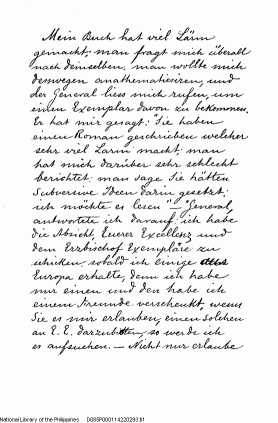 Mein Buch hat viel Lärm
gemacht; man fragt mich überall
nach demselben, man wollte mich
deswegen anathematisiren, und
der General liess mich rufen, um
einen Exemplar davon zu bekommen.
Er hat mir gesagt: "Sie haben
einen Roman geschrieben welcher
sehr viel Lärm macht; man
hat mich darüber sehr schlecht
berichtet: man sage Sie hätten
Subversive Ideen darin gesetzt;
ich möchte es lesen" — "General,
antwortete ich darauf, ich habe
die Absicht, Euerer Excellenz und
dem Erzbischof Exemplare zu
schicken, sobald ich einige aus
Europa erhalte, denn ich habe
nur einen und den habe ich
einem Freunde verschenkt, wenn
Sie es mir erlauben, einen solchen
an E. E. darzubieten, so werde ich
es aufsuchen. — Nicht nur erlaube
National Library of the Philippines D08SP000114220293.81